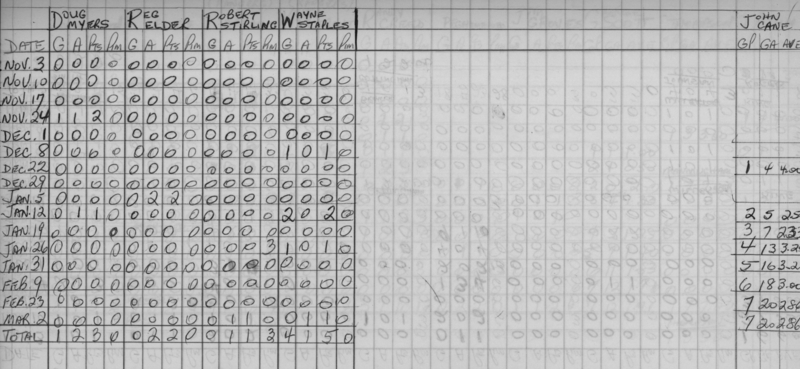 DOUG MYERS REG ELDER ROBERT STIRLING WAYNE STAPLES JOHN CANE
DATE G A Pts Pim G A Pts Pim G A Pts Pim G A Pts Pim GP GA AVE
NOV. 3 0 0 0 0 0 0 0 0 0 0 0 0 0 0 0 0
NOV. 10 0 0 0 0 0 0 0 0 0 0 0 0 0 0 0 0
NOV. 17 0 0 0 0 0 0 0 0 0 0 0 0 0 0 0 0
NOV. 24 1 1 2 0 0 0 0 0 0 0 0 0 0 0 0 0
DEC. 1 0 0 0 0 0 0 0 0 0 0 0 0 0 0 0 0
DEC. 8 0 0 0 0 0 0 0 0 0 0 0 0 1 0 1 0
DEC. 22 0 0 0 0 0 0 0 0 0 0 0 0 0 0 0 0 1 4 4.00
DEC. 29 0 0 0 0 0 0 0 0 0 0 0 0 0 0 0 0
JAN. 5 0 0 0 0 0 2 2 0 0 0 0 0 0 0 0 0
JAN. 12 0 1 1 0 0 0 0 0 0 0 0 0 2 0 2 0 2 5 25
JAN. 19 0 0 0 0 0 0 0 0 0 0 0 0 0 0 0 0 3 7 233
JAN. 26 0 0 0 0 0 0 0 0 0 0 0 3 1 0 1 0 4 13 3.2
JAN. 31 0 0 0 0 0 0 0 0 0 0 0 0 0 0 0 0 5 16 3.2
FEB. 9 0 0 0 0 0 0 0 0 0 0 0 0 0 0 0 0 6 18 3.00
FEB. 23 0 0 0 0 0 0 0 0 0 0 0 0 0 0 0 0 7 20 286
MAR. 2 0 0 0 0 0 0 0 0 0 1 1 0 0 1 1 0 7 20 286
TOTAL 1 2 3 0 0 2 2 0 0 1 1 3 4 1 5 0